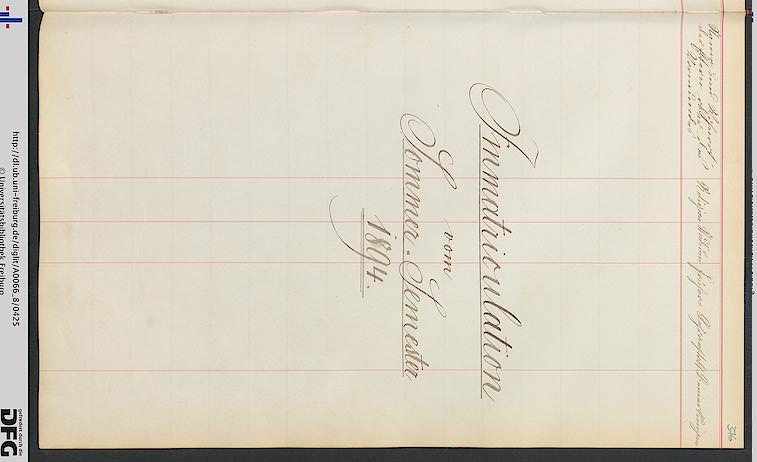 Immatriculation
vom
Sommer-Semester
1894.
376
http://dl.ub.uni-freiburg.de/diglit/A0066_8/0425
© Universitätsbibliothek Freiburg
gefördert durch die
DFG